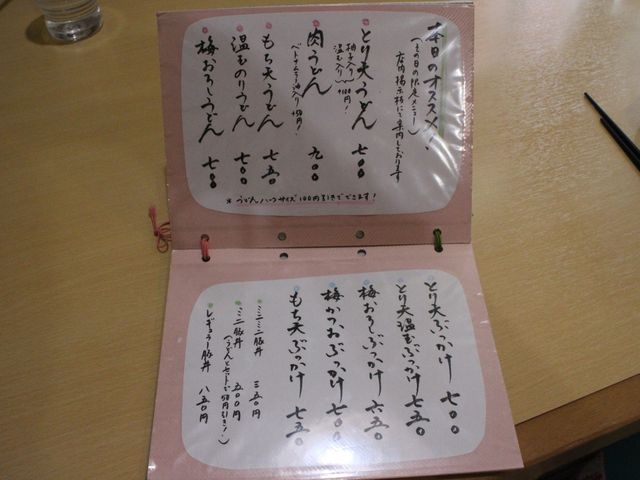 本日のオススメ!
(その日の限定メニュー)
店内掲示板にて案内しております
とり天うどん 七〇〇
柚子入り
温玉入り +100円!
肉うどん 九〇〇
ベトナムラー油入り +50円!
もち天うどん 七五〇
温玉のりうどん 七〇〇
梅おろしうどん 七〇〇
※うどんハーフサイズ100円引きでできます!
とり天ぶっかけ 七〇〇
とり天温玉ぶっかけ 七五〇
梅おろしぶっかけ 六五〇
梅かつおぶっかけ 七〇〇
もち天ぶっかけ 七五〇
ミニミニ豚丼 三五〇円
ミニ豚丼 五〇〇円
(うどんセットで50円引き!)
レギュラー豚丼 八五〇円